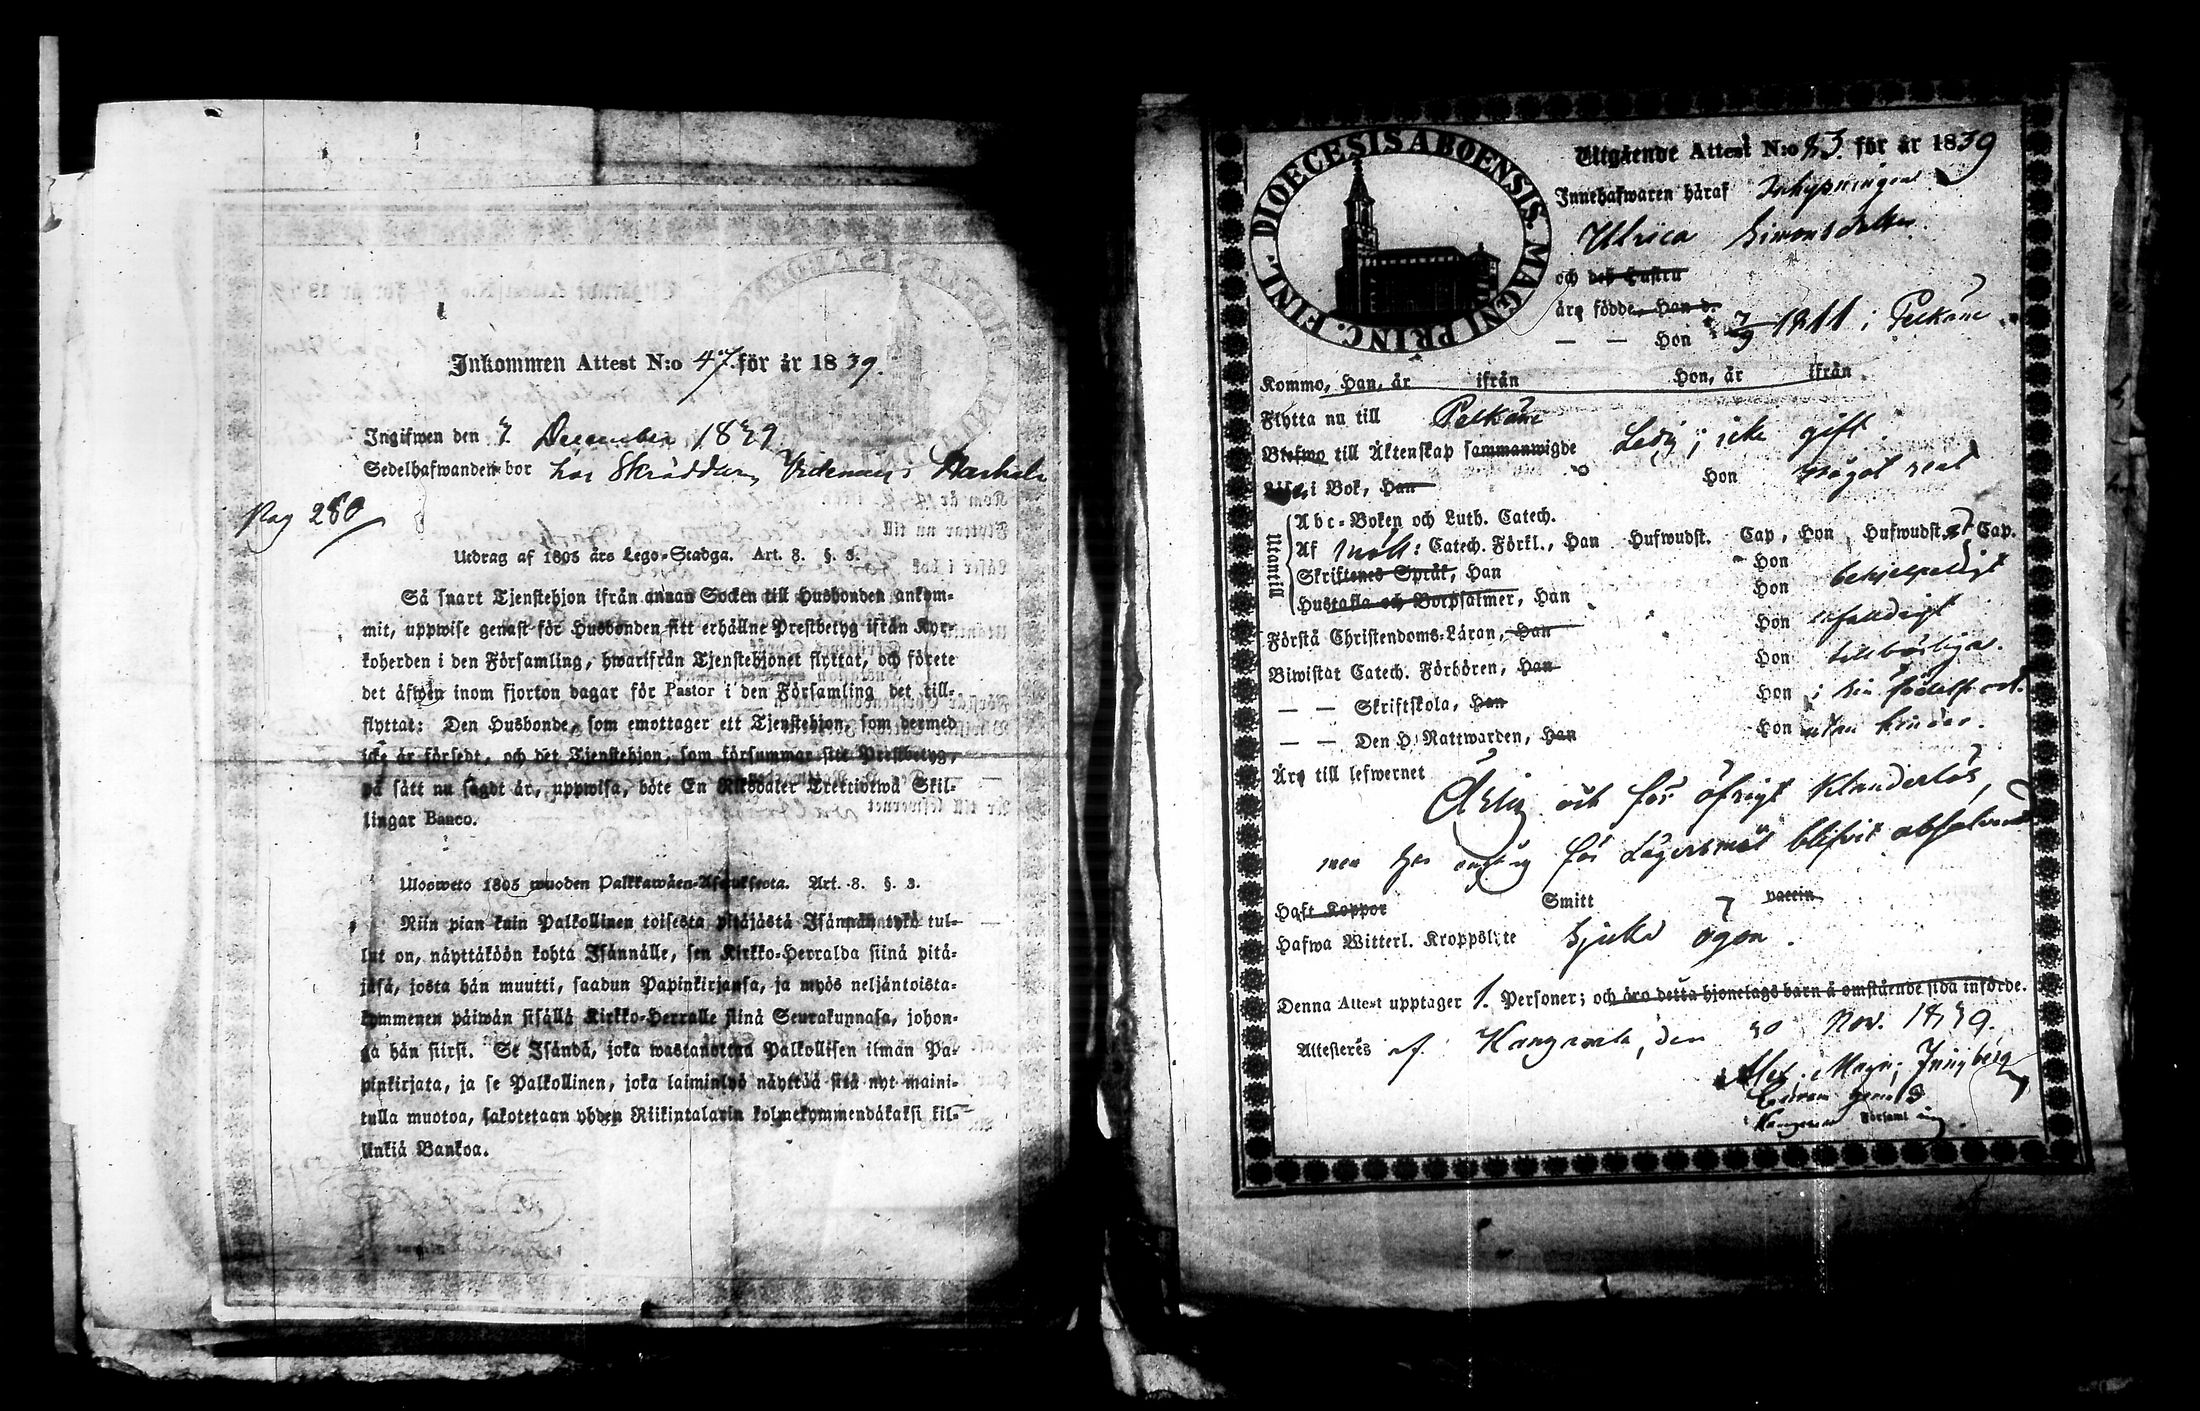 Inkommen Attest N:o 47. för år 1839.
Ingifwen den 7 December 1839
Sedelhafwanden bor hos Skräddaren
Pag 280
Utdrag af 1805 års Lego-Stadga. Art. 8. §. 3.
Så snart Tjenstehjon ifrån annan Socken till Husbonden ankom-
mit, uppwise genast för Husbonden sitt erhållne Prestbetyg ifrån Kyr-
koherden i den Församling, hwartifrån Tjenstehjonet flyttat, och förete
det äfwen inom fjorton dagar för Pastor i den Församling det till-
flyttat: Den Husbonde, som emottager ett Tjenstehjon, som dermed
icke är försedt, och det Tjenstehjon, som försummar sitt Prestbetyg,
på sätt nu sagdt är, uppwisa, böte En Riksdaler Trettiotwå Skil-
lingar Banco.
Ulosweto 1805 wuoden Palkkawäen-Asetuksesta. Art. 8. §. 3.
Niin pian kuin Palkollinen toisesta pitäjästä Isännän tykö tul-
lut on, näyttäköön kohta Isännälle, sen Kirkko-Herralda siinä pitä-
jäsä, josta hän muutti, saadun Papinkirjansa, ja myös neljäntoista-
kymmenen päiwän sisällä Kirkko-Herralle siinä Seurakunnasa, johon-
ga hän siirsi. Se Isändä, joka wastanottaa Palkollisen ilman Pa-
pinkirjata, ja se Palkollinen, joka laiminlyö näyttää sitä nyt maini-
tulla muotoa, sakotetaan yhden Riikintalarin kolmekymmendäkaksi kil-
linkiä Bankoa.
DIOECESIS ABOENSIS. MAGNI PRINC. FINL.
Utgående Attest N:o 83. för år 1839
Innehafwaren häraf Inhysningen
Ulrica Simonsdotter
och des Hustru
äro födde, Han d.
— — Hon 7/9 1811 i Pelkäne
Kommo, Han, år ifrån Hon, år ifrån
Flytta nu till Pelkäne
Blefwo till Äktenskap sammanwigde Ledig; icke gift
Läsa i Bok, Han Hon något rent
Utantill
Abc-Boken och Luth. Catech.
Af Catech. Förkl., Han Hufwudst. Cap, Hon Hufwudst. Cap.
Skriftenes Språk, Han Hon
Hustafla och Botpsalmer, Han Hon behjelpeligt
Förstå Christendoms-Läran, Han Hon enfaldigt
Biwistat Catech. Förhören, Han Hon tillbörligen.
— — Skriftskola, Han Hon i sin födelseort.
— — Den H. Nattwarden, Han Hon utan hinder.
Äro till lefwernet
Ärlig och för öfrigt klanderlös,
men har för Lägersmål blifvit absolverad
Haft Koppor Smitt vaccin
Hafwa Witterl. Kroppslyte Sjuka ögon.
Denna Attest upptager 1. Personer; och äro detta hjonelags barn å omstående sida införde.
Attesteres af Kangasala, den 30 Nov. 1839.
Alex. Magn. Jungberg
Församling